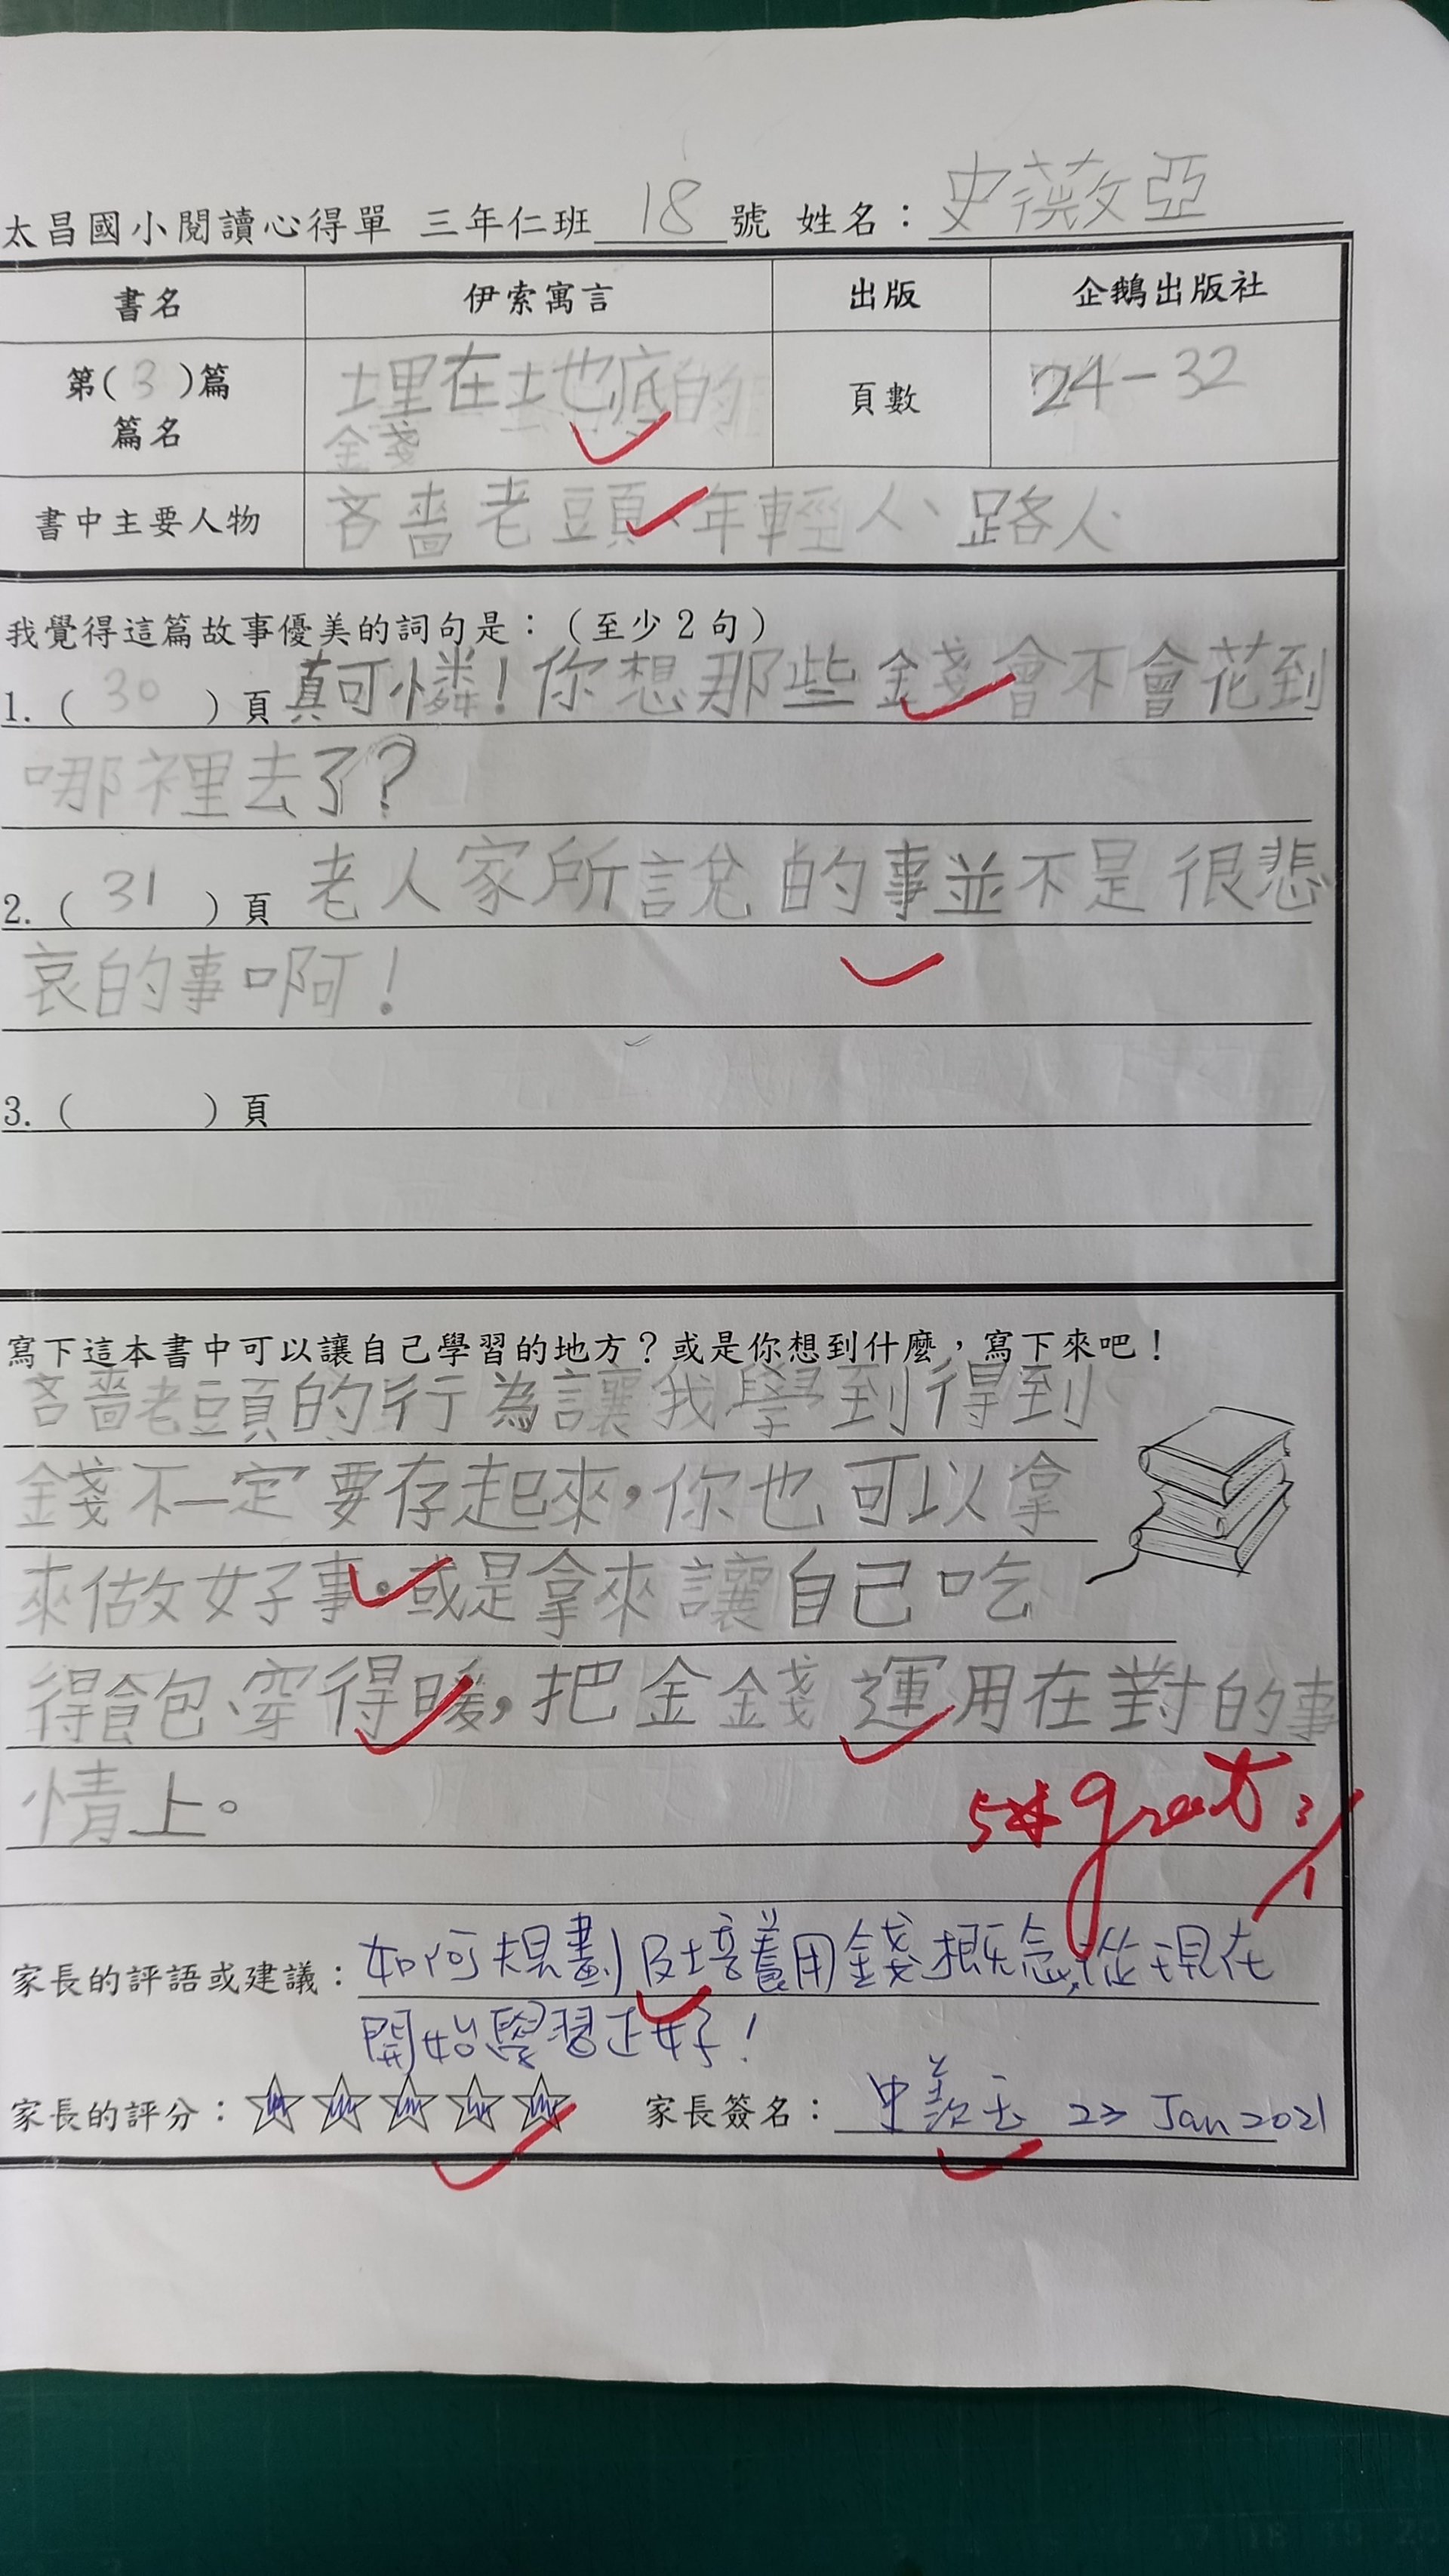 太昌國小閱讀心得單 三年仁班 18 號 姓名：史薇亞
書名 伊索寓言 出版 企鵝出版社
第(3)篇 篇名 埋在土地底的 頁數 24-32
金錢
書中主要人物 吝嗇老頭、年輕人、路人
我覺得這篇故事優美的詞句是：（至少2句）
1.( 30 )頁 真可憐！你想那些錢會不會花到
哪裡去了？
2.( 31 )頁 老人家所說的事並不是很悲
哀的事啊！
3.( )頁
寫下這本書中可以讓自己學習的地方？或是你想到什麼，寫下來吧！
吝嗇老頭的行為讓我學到得到
錢不一定要存起來，你也可以拿
來做好事。或是拿來讓自己吃
得飽、穿得暖，把金錢運用在對的事
情上。
5* great 3/1
家長的評語或建議：如何規劃及培養用錢概念，從現在
開始學習正好！
家長的評分：☆☆☆☆☆ 家長簽名：史 23 Jan 2021